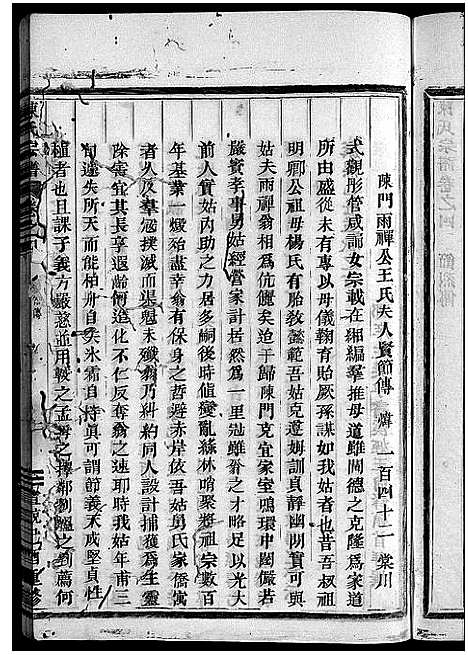 陳門雨禪公王氏夫人賢節傳 嶹 一百四十二 棠川
式觀彤管咸誦女宗載在湘編羣推母道雖周德之克隆爲家道
所由盛從未有專以母儀鞠育貽厥孫謀如我姑者也昔吾叔祖
明卿公祖母楊氏有胎教懿範吾姑克遵姆訓貞靜幽閒實可賓
姑夫雨禪翁相爲伉儷矣迨于歸陳門克宜家室鳴環中閨儼若
嚴賓孝事舅姑經營家計哲然爲一里冠雖翁之才略足以光大
前人實姑內助之力居多嗣後時値變亂綠林哨聚經吾宗數百
年基業一燬殆盡幸翁保身之哲避赤岸依吾姑舅氏家僑寓
者久及羣冦撲滅而裝魁未殲翁乃糾約同人設計捕獲爲生靈
除害宜其長享遐齡何造化不仁反奪翁之速耶時我姑年甫三
旬遽失所天而能柏舟自矢氷霜自持眞可謂節義天成堅貞性
植者也且課子義方嚴慈並用較之孟母之擇鄰劉媪之
陳氏宗譜
陳氏宗譜卷之四 節烈傳